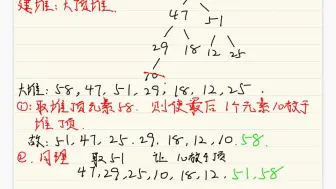 建堆:大顶堆.
47 51
29 18 12 25
10
大堆: 58, 47, 51, 29, 18, 12, 25 .
①: 取堆顶元素58. 则使最后1个元素10放于
堆顶.
故: 51, 47, 25, 29, 18, 12, 10, 58.
②. 同理 取51 让10放于顶
47, 29, 25, 10, 18, 12, 51, 58